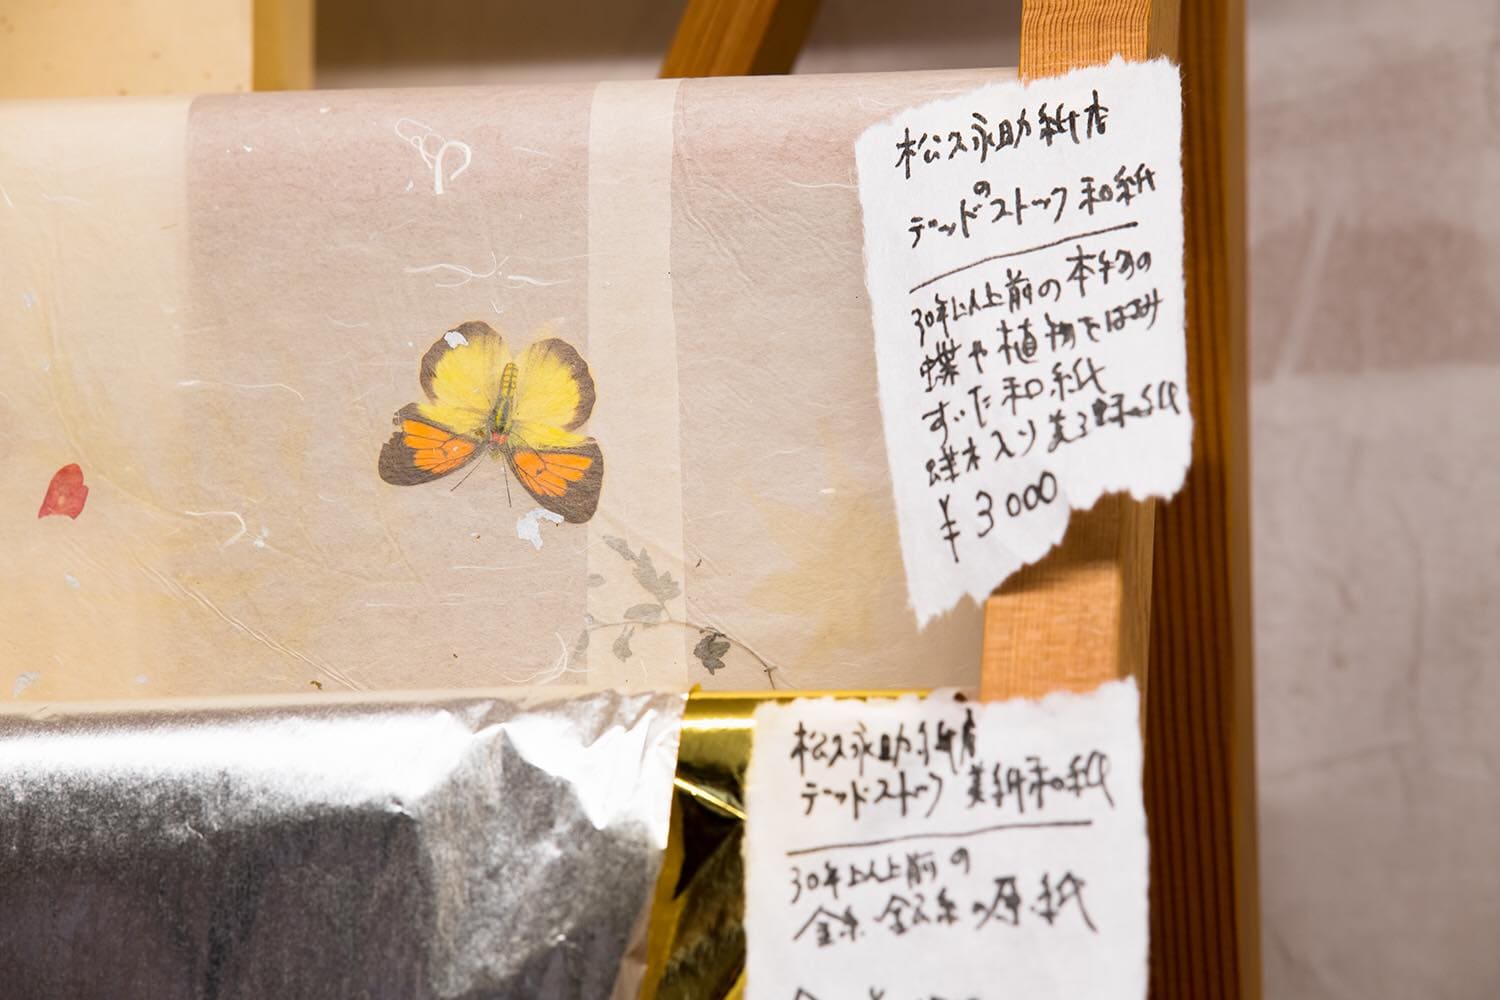 松久永助紙店
の
デッドストック和紙
30年以上前の本物の
蝶や植物をはさみ
すいた和紙
蝶木入り美
¥3000
松久永助紙店
デッドストック 美術和紙
30年以上前の
金糸・銀糸の原紙